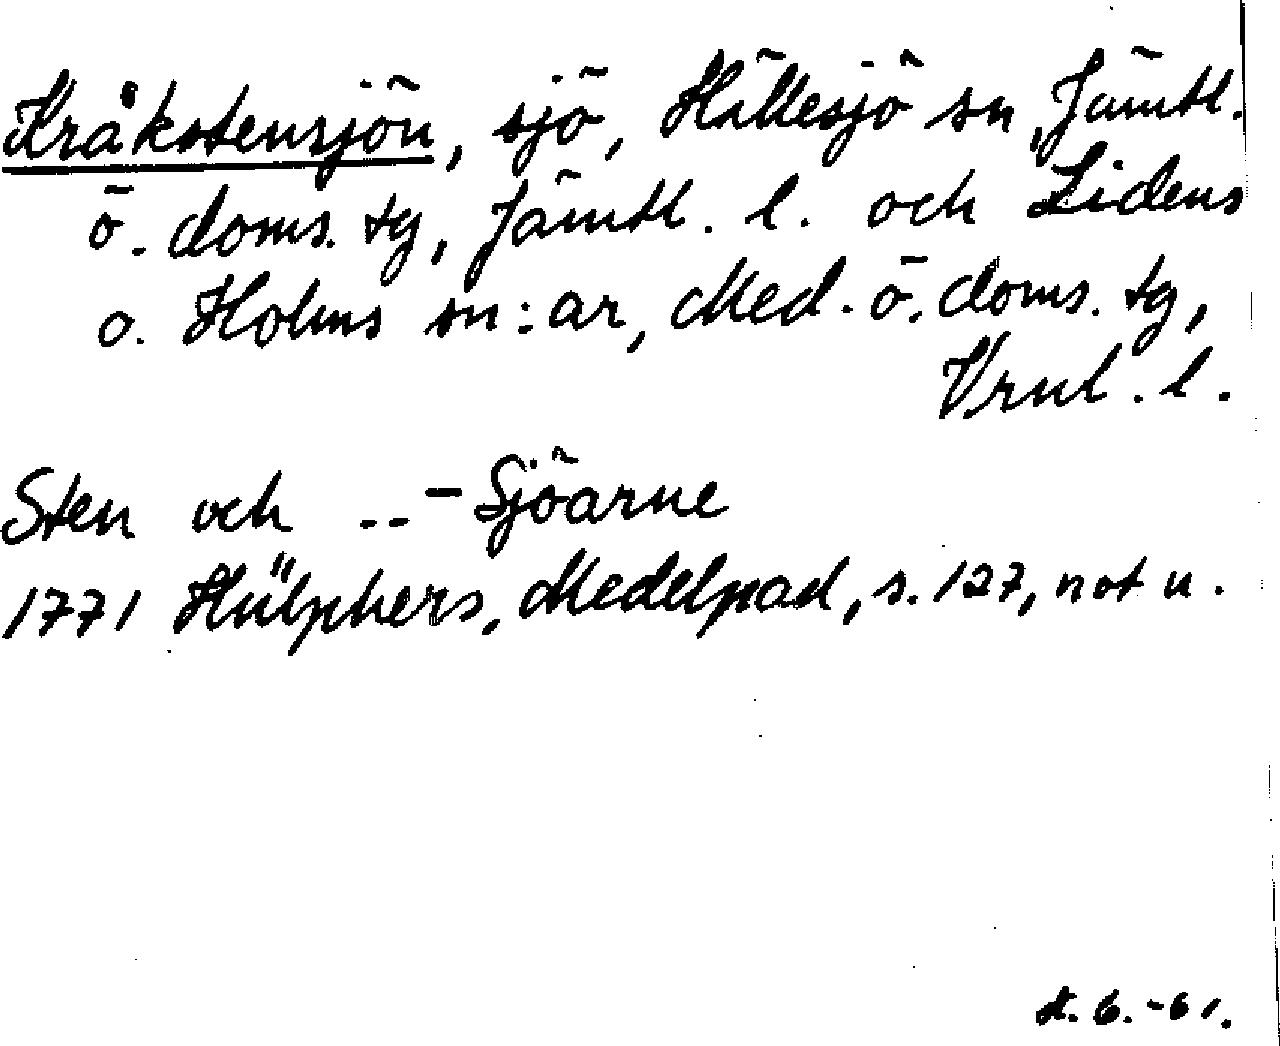 Kråkstensjön, sjö, Hällesjö sn, Jämtl.
ö. doms. tg, Jämtl. l. och Lidens
o. Holms sn:ar, Med. ö. doms. tg,
Vrnl. l.
Sten och -- - Sjöarne
1771 Hülphers, Medelpad, s. 127, not u.
6.-61.